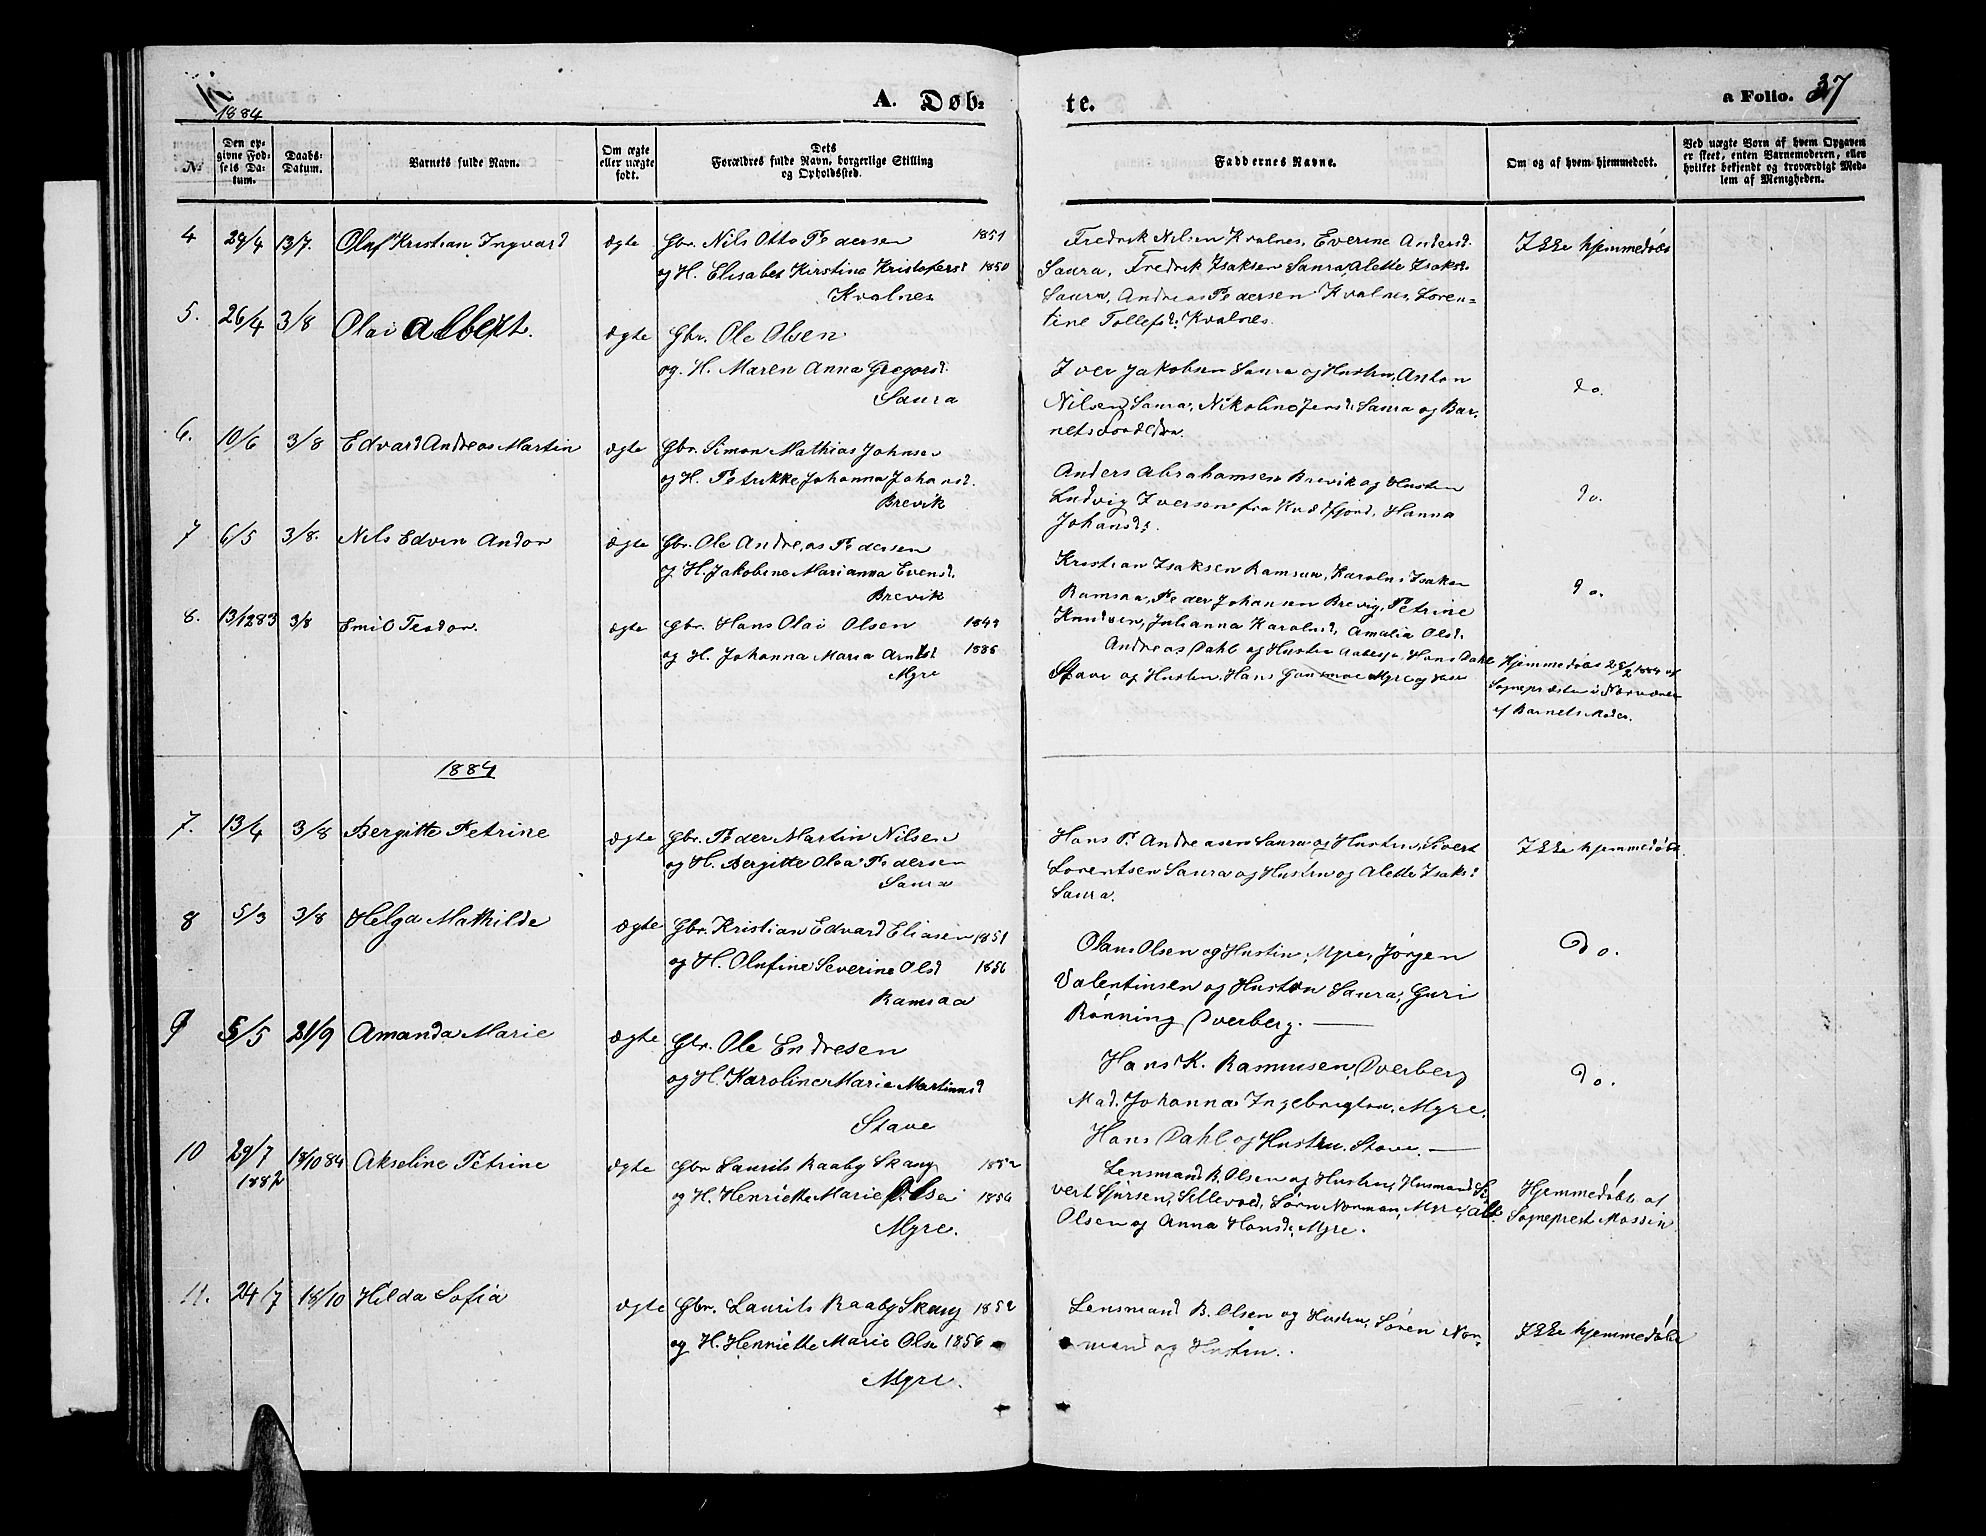 1884
A. Døb-
te.
a Folio. 37
№
Den op-
givne Fød-
sels Da-
tum.
Daabs-
Datum.
Barnets fulde Navn.
Om ægte
eller uægte
født.
Dets
Forældres fulde Navn, borgerlige Stilling
og Opholdssted.
Faddernes Navne.
Om og af hvem hjemmedøbt.
Ved uægte Børn af hvem Opgaven
er skeet, enten Barnemoderen, eller
hvilket bekjendt og troværdigt Med-
lem af Menigheden.
4 29/4 13/7. Oluf Kristian Ingvard ægte Gbr. Nils Otto Pedersen 1851
og H. Elisabet Kirstine Kristofersd 1850
Kvalnes
Fredrik Nilsen Kvalnes, Everine Andersd.
Saura, Fredrik Isaksen Saura, Alette Isaksd.
Saura, Andreas Pedersen Kvalnes, Loren-
tine Tollefsd. Kvalnes.
Ikke hjemmedøbt
5. 26/4 3/8 Olai Albert. ægte Gbr. Ole Olsen
og. H. Maren Anna Gregorsd.
Saura
Iver Jakobsen Saura og Hustru, Anton
Nilsen Saura, Nikoline Jensd. Saura og Bar-
netsforældre.
do.
6. 10/6 3/8 Edvard Andreas Martin ægte Gbr. Simon Mathias Johnsen
og H. Petrikke Johanna Johansd.
Brevik
Anders Abrahamsen Brevik og Hustru
Ludvig Iversen fra Kvædfjord, Hanna
Johansd.
do.
7 6/5 3/8. Nils Edvin Andor ægte Gbr. Ole Andreas Pedersen
og H. Jakobine Marianna Evensd.
Brevik
Kristian Isaksen Ramsaa, Karolus Isaksen
Ramsaa, Peder Johansen Brevig, Petrine
Knudsen, Julianna Karolusd, Amalia Olsd.
do.
8. 13/12 83 3/8 Emil Teodor. ægte Gbr. Hans Olai Olsen 1849
og H. Johanna Maria Arntsd 1886
Myre
Andreas Dahl og Hustru Aabesjø, Hans Dahl
Stave og Hustru, Hans Gunsmoe Myre og
Hjemmedøbt 28/2 1884 af
Sognepræsten i Nærværelse
af Barnets Moder.
1884
7. 13/4 3/8 Bergitte Petrine ægte Gbr. Peder Martin Nilsen
og H. Bergitte Olea Pedersen
Saura
Hans P. Andreasen Saura og Hustru, Sivert
Lorentsen Saura og Hustru og Alette Isaksd
Saura.
Ikke hjemmedøbt.
8 5/3 3/8 Helga Mathilde ægte Gbr. Kristian Edvard Eliasen 1851
og H. Olufine Severine Olsd 1856
Ramsaa
Olaus Olsen og Hustru, Myre, Jørgen
Valentinsen og Hustru Saura, Guri
Rønning Dverberg.
Do.
9 5/5 21/9 Amanda Marie ægte Gbr. Ole Endresen
og H. Karoline Marie Martinusd
Stave
Hans K. Rasmusen, Dverberg
Mad. Johanna Ingebrigtsen, Myre,
Hans Dahl og Hustru, Stave.
do.
10 29/7
1882 18/10 84 Akseline Petrine ægte Gbr Laurits Raaby Skaug 1852
og H. Henriette Marie Olsen 1856
Myre.
Lensmand B. Olsen og Hustru, Husmand Si-
vert Sjursen, Sellevold, Søren Norman, Myre, Alb.
Olsen og Anna Hansd. Myre.
Hjemmedøbt af
Sogneprest Mossin
11. 24/7 18/10 Hilda Sofia ægte Gbr. Laurits Raaby Skaug 1852
og H. Henriette Marie Olsen 1856
Myre.
Lensmand B. Olsen og Hustru, Søren Nor-
mand og Hustru.
Ikke hjemmedøbt